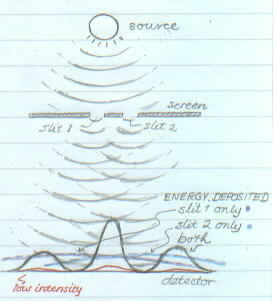 source
screen
slit 1
slit 2
ENERGY DEPOSITED
slit 1 only
slit 2 only
both
low intensity
detector